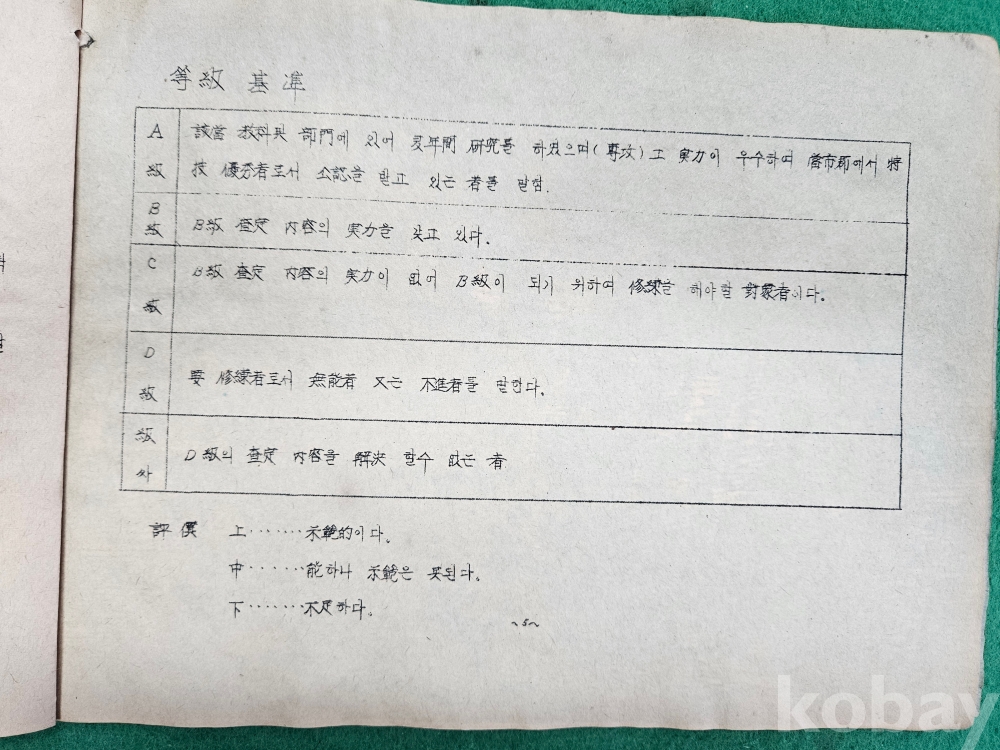 等級 基準
A級 該當 教科 및 部門에 있어 多年間 研究를 하였으며(專攻)고 実力이 우수하며 當市郡에서 特
技 優秀者로서 公認을 받고 있는 者를 말함.
B級 B級 査定 内容의 実力을 갖고 있다.
C級 B級 査定 内容의 実力이 없어 B級이 되기 위하여 修練을 해야할 対象者이다.
D級 要 修練者로서 無能者 又는 不進者를 말한다.
級外 D級의 査定 内容을 解決 할수 없는 者
評價 上‥‥‥‥示範的이다.
中‥‥‥‥能하나 示範은 못된다.
下‥‥‥‥不足하다.
~5~
kobay